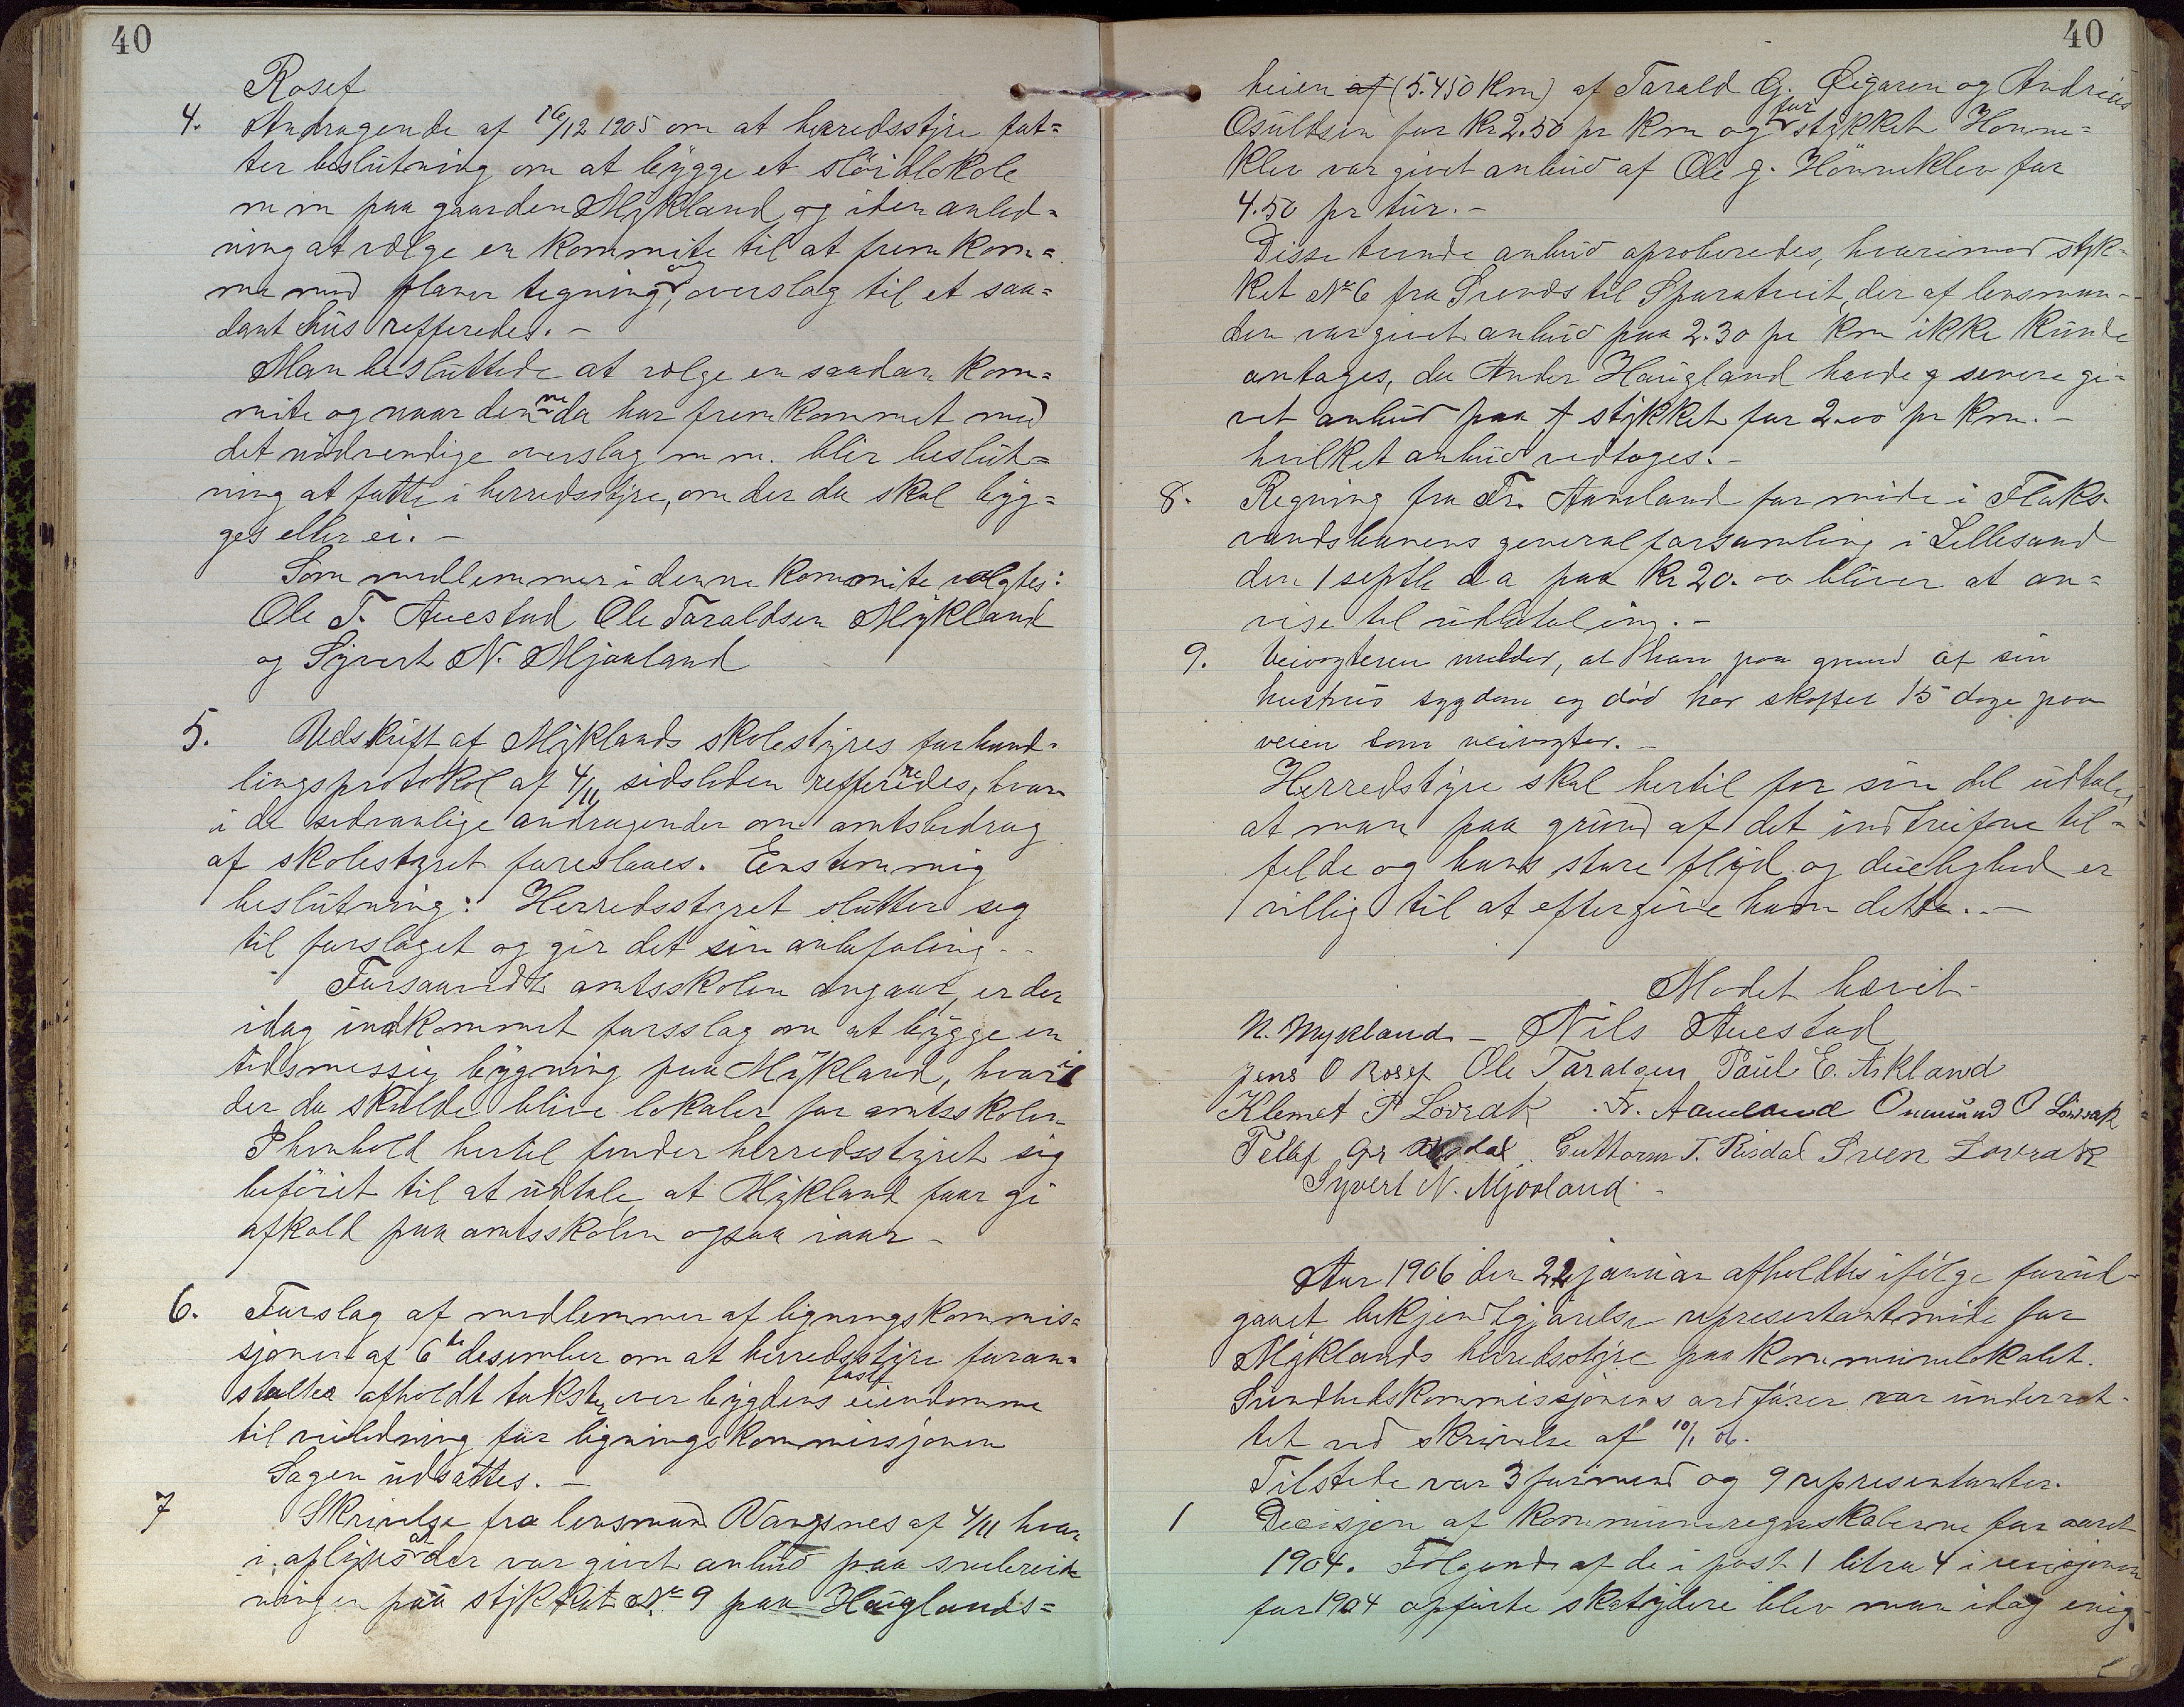 40
Rosef
4. Andragende af 16/12 1905 om at herredsstyre fat=
ter beslutning om at bygge et slöidlokale
m m paa gaarden Mykland og i den anled=
ning at vælge en kommite til at frem kom=
me med planer tegning og overslag til et saa=
dant hus refferedes. -
Man besluttede at vælge en saadan kom=
mite og naar denne da har fremkommet med
det nödvendige overslag m m. blir beslut=
ning at fatte i herredsstyre, om der da skal byg=
ges eller ei. -
Som medlemmer i denne kommite valgtes:
Ole T. Auestad Ole Taraldsen Mykland
og Syvert N. Mjaaland
5. Udskrift af Myklands skolestyres forhand=
lingsprotokol af 4/11 sidsleden reffereredes, hvor=
i de sedvanlige andragender om amtsbidrag
af skolestyret foreslaaes. Enstemmig
beslutning: Herredsstyret slutter seg
til forslaget og gir det sin anbefaling. -
Forsaavidt amtsskolen angaar, er der
idag indkommet forsslag om at bygge en
tidsmessig bygning paa Mykland, hvori
der da skulde blive lokaler for amtsskolen
I henhold hertil finder herredsstyret sig
beföiet til at udtale, at Mykland faar gi
afkald paa amtsskolen ogsaa iaar -
6. Forslag af medlemmer af ligningskommis=
sjonen af 6te desember om at herredsstyre foran=
stalter afholdt takster over bygdens fastf eiendomme
til veiledning for ligningskommissjonen
Sagen udsattes. -
7 Skrivelse fra lensmand Vangsnes af 4/11 hvor
i oplyses at der var givet anbud paa snebreid
ningen paa stykket No 9 paa Hauglands=
40
heien af (5.450 Km) af Tarald G. Öigaren og Andreas
Osuldsen for Kr 2.50 pr Km og for stykket Honne=
klev var givet anbud af Ole G. Hönneklev for
4.50 pr tur. -
Disse tvende anbud aproberedes, hvorimod styk=
ket No 6 fra Svends til Sparatveit, der af lensman-
den var givet anbud paa 2.30 pr Km ikke kunde
antages, da Ander Haugland havde g senere gi=
vet anbud paa stykket for 2.00 pr Km. -
hvilket anbud vedtoges. -
8. Regning fra Fr. Aamland for möde i Flaks-
vandsbanens generalforsamling i Lillesand
den 1 septb d a paa Kr 20.00 bliver at an=
vise til udbetaling. -
9. Veivogteren melder, at han paa grund af sin
hustrus sygdom og död har skoftet 15 dage paa
veien som veivogter. -
Herredstyre skal hertil for sin del udtale,
at man paa grund af det indtrufne til=
felde og hans store flid og duelighed er
villig til at eftergive ham dette. -
Modet hævet -
N. Mykland - Nils Auestad
Jens O Rosef Ole Taralsen Paul E. Askland
Klemet P Lovrak . Fr. Aamland Onmund O Lövrak
Tellef Gr Risdal. Guttorm T. Risdal Sven Lovrak
Syvert N. Mjaaland -
Aar 1906 den 22 januar afholdtes ifölge forud-
gaaet bekjendtgjörelse representantmöde for
Myklands herredsstyre paa kommunelokalet.
Sundhedskommissjonens ordförer var underret-
tet ved skrivelse af 10/1 06.
Tilstede var 3 formend og 9 representanter.
1 Decisjon af kommuneregnskaberne for aaret
1904. Fölgende af de i post 1 litra 4 i revisjonen
for 1904 opförte skatydere blev man idag enig